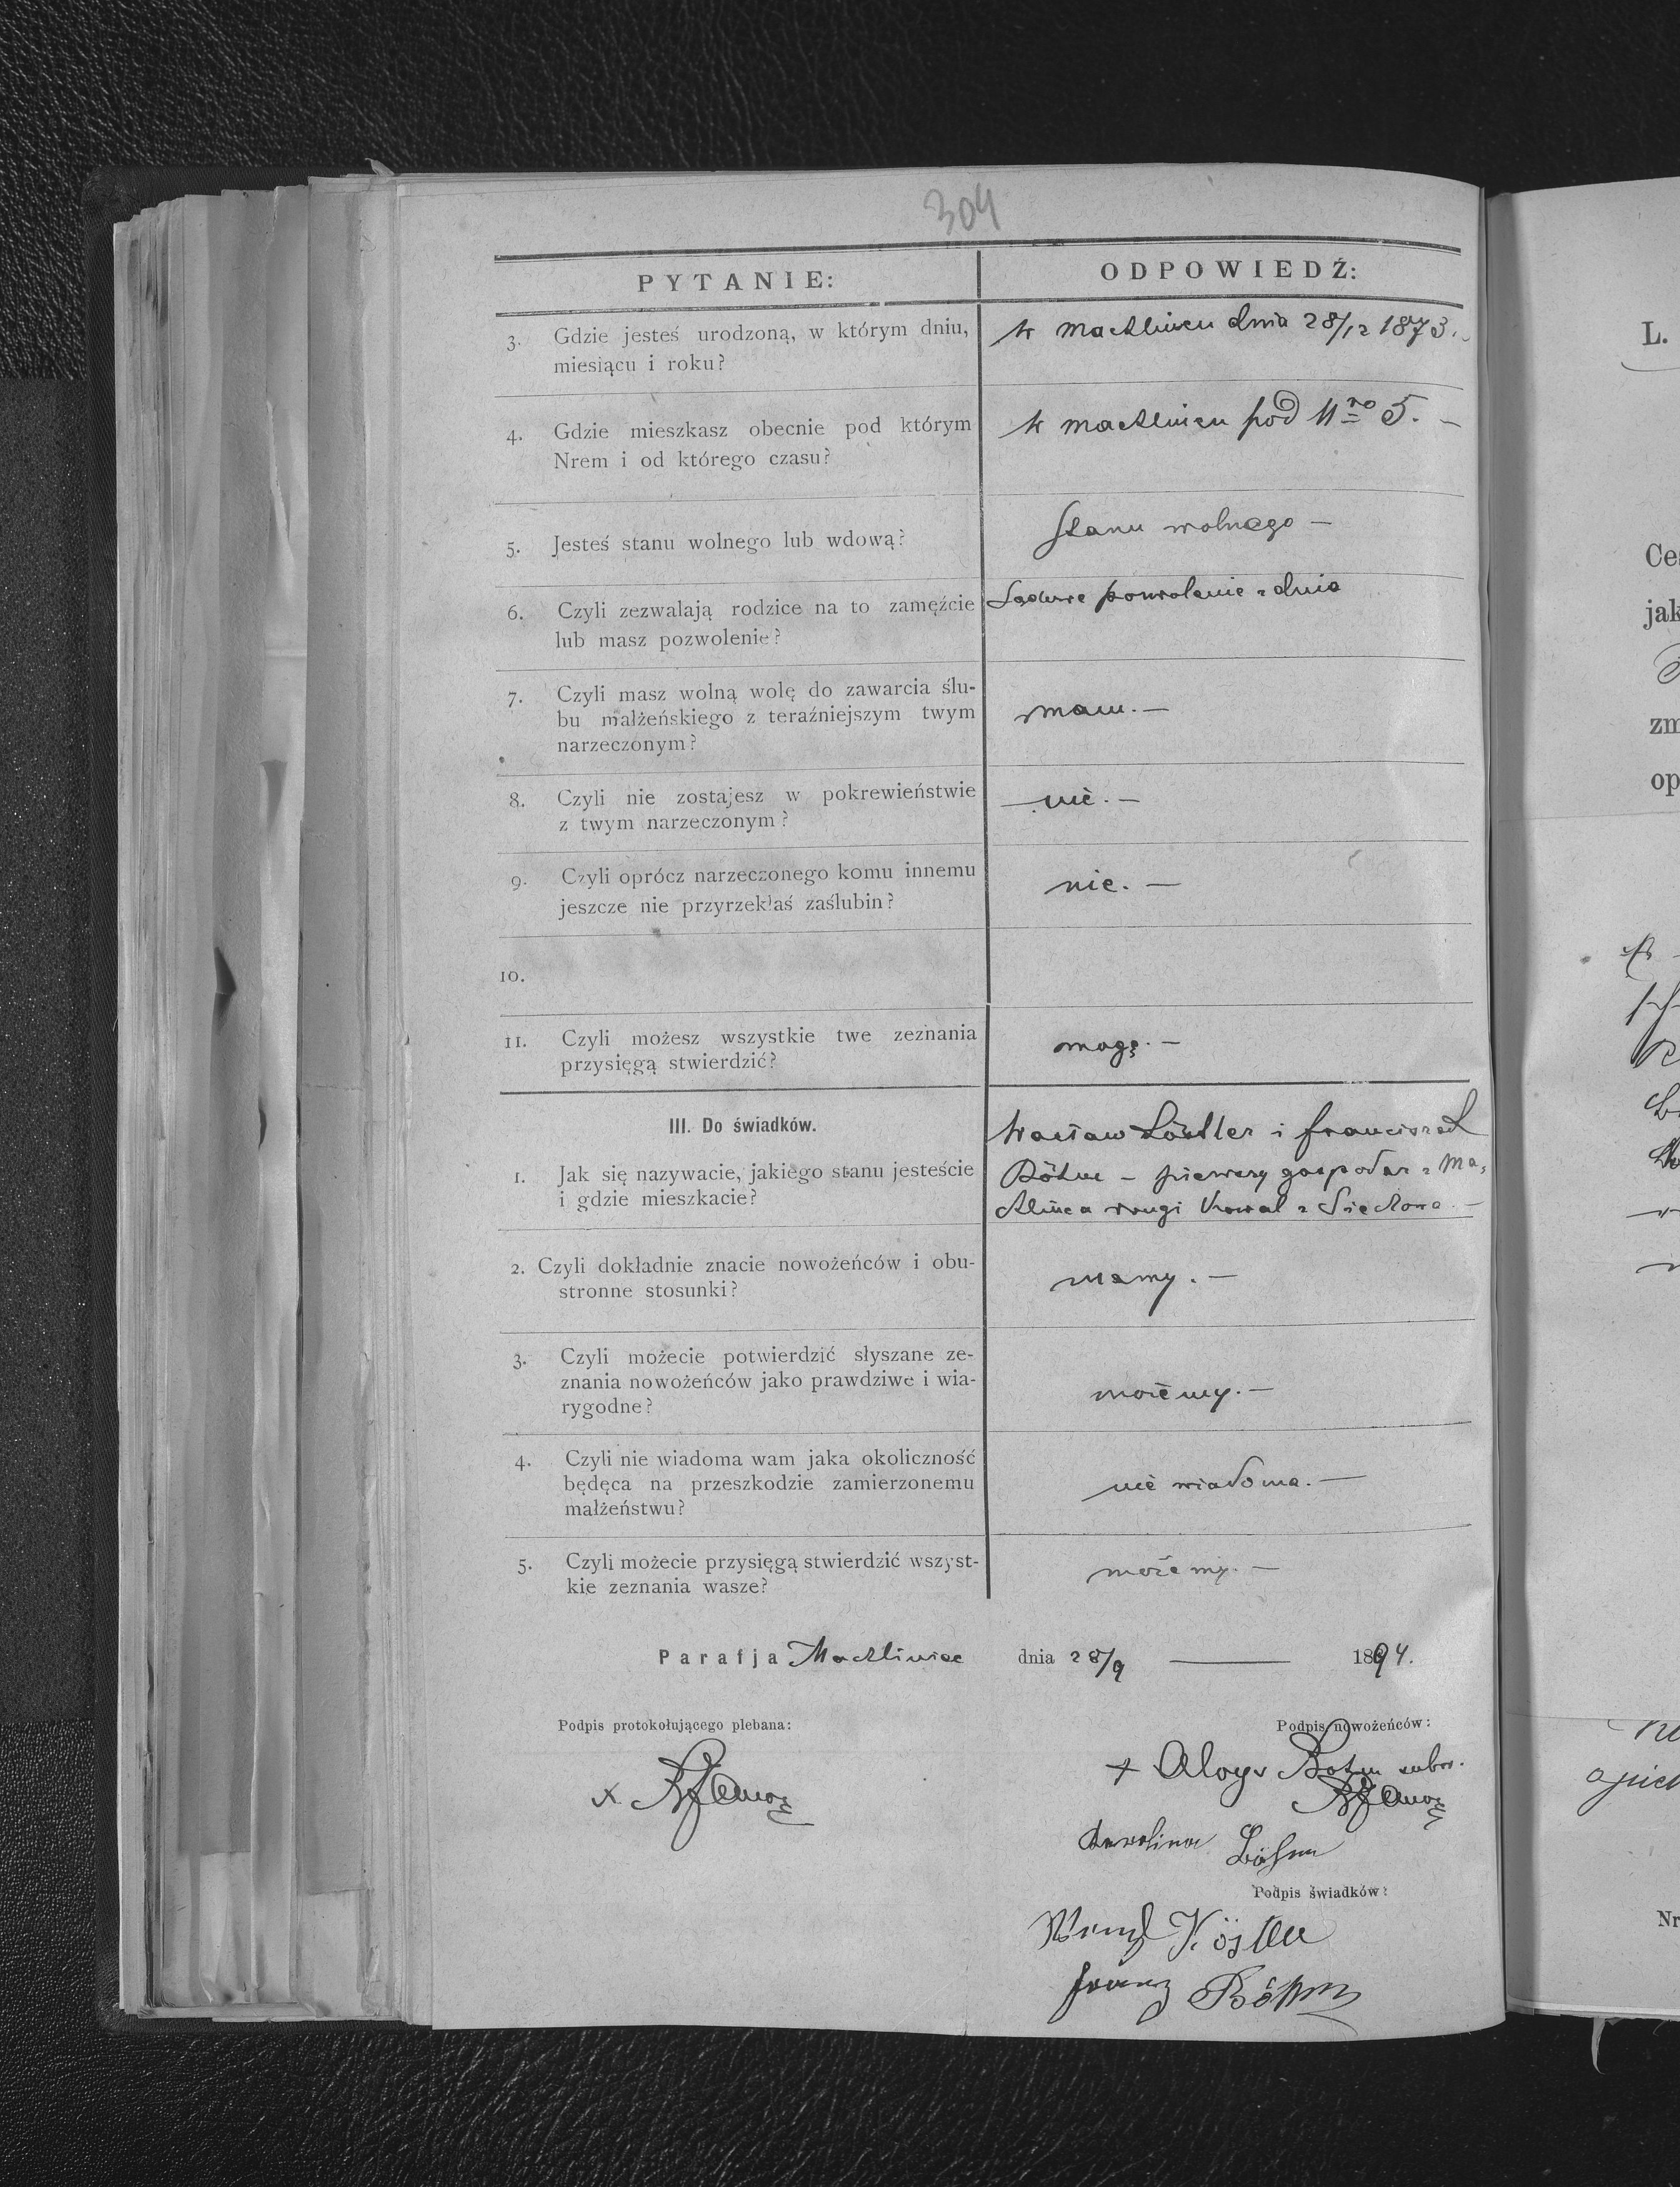 304
PYTANIE:
ODPOWIEDŹ:
3. Gdzie jesteś urodzoną, w którym dniu,
miesiącu i roku?
w Machlińcu dnia 28/12 1873.
4. Gdzie mieszkasz obecnie pod którym
Nrem i od którego czasu?
w Machlińcu pod Nro 5. —
5. Jesteś stanu wolnego lub wdową?
Stanu wolnego —
6. Czyli zezwalają rodzice na to zamęźcie
lub masz pozwolenie?
Sądowe pozwolenie z dnia
7. Czyli masz wolną wolę do zawarcia ślu-
bu małżeńskiego z teraźniejszym twym
narzeczonym?
mam. —
8. Czyli nie zostajesz w pokrewieństwie
z twym narzeczonym?
nie. —
9. Czyli oprócz narzeczonego komu innemu
jeszcze nie przyrzekłaś zaślubin?
nie. —
10.
11. Czyli możesz wszystkie twe zeznania
przysięgą stwierdzić?
mogę. —
III. Do świadków.
1. Jak się nazywacie, jakiego stanu jesteście
i gdzie mieszkacie?
Wacław Köstler i Franciszek
Böhm — pierwszy gospodar z Ma-
chlińca drugi Kowal z
2. Czyli dokładnie znacie nowożeńców i obu-
stronne stosunki?
znamy. —
3. Czyli możecie potwierdzić słyszane ze-
znania nowożeńców jako prawdziwe i wia-
rygodne?
możemy. —
4. Czyli nie wiadoma wam jaka okoliczność
będęca na przeszkodzie zamierzonemu
małżeństwu?
nie wiadoma. —
5. Czyli możecie przysięgą stwierdzić wszyst-
kie zeznania wasze?
możemy. —
Parafja Machliniec dnia 28/9 — 1894.
Podpis protokołującego plebana:
Podpis nowożeńców:
+ Aloys Bohm
Karolina Böhm
Podpis świadków:
Wenzl Köstler
Franz Böhm
L.
Ces
jak
zm
op
Nr